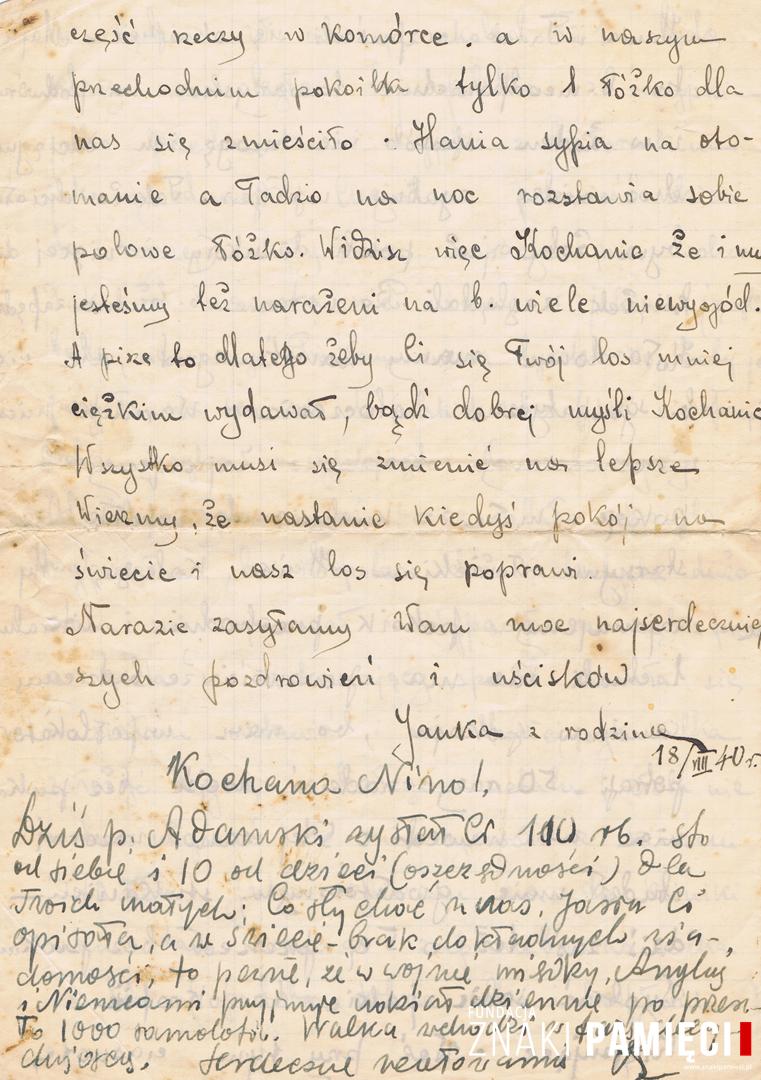 część rzeczy w komórce. a w naszym
przechodnim pokoiku tylko 1 łóżko dla
nas się zmieściło. Hania sypia na oto-
manie a Tadzio na noc rozstawia sobie
polowe łóżko. Widzisz więc Kochanie że i my
jesteśmy też narażeni na b. wiele niewygód.
A piszę to dlatego żeby Ci się Twój los mniej
ciężkim wydawał, bądź dobrej myśli Kochanie
Wszystko musi się zmienić na lepsze
Wierzmy, że nastanie kiedyś pokój na
świecie i nasz los się poprawi.
Narazie zasyłamy Wam moc najserdeczniej
szych pozdrowień i uścisków
Janka z rodziną
18/VIII 40 r.
Kochana Nino!,
Dziś p. Adamski wysłał Ci 110 rb. sto
od siebie i 10 od dzieci (oszczędności) dla
Twoich małych; Co słychać u nas, Ci
opisała, a w świecie - brak dokładnych wia-
domości, to pewne, że w wojnie między Anglią
i Niemcami przyjmuje udział dziennie po
to 1000 samolotów. Walka wchodzi w
dujący. Serdecznie
FUNDACJA
ZNAKI PAMIĘCI
www.znakipamieci.pl